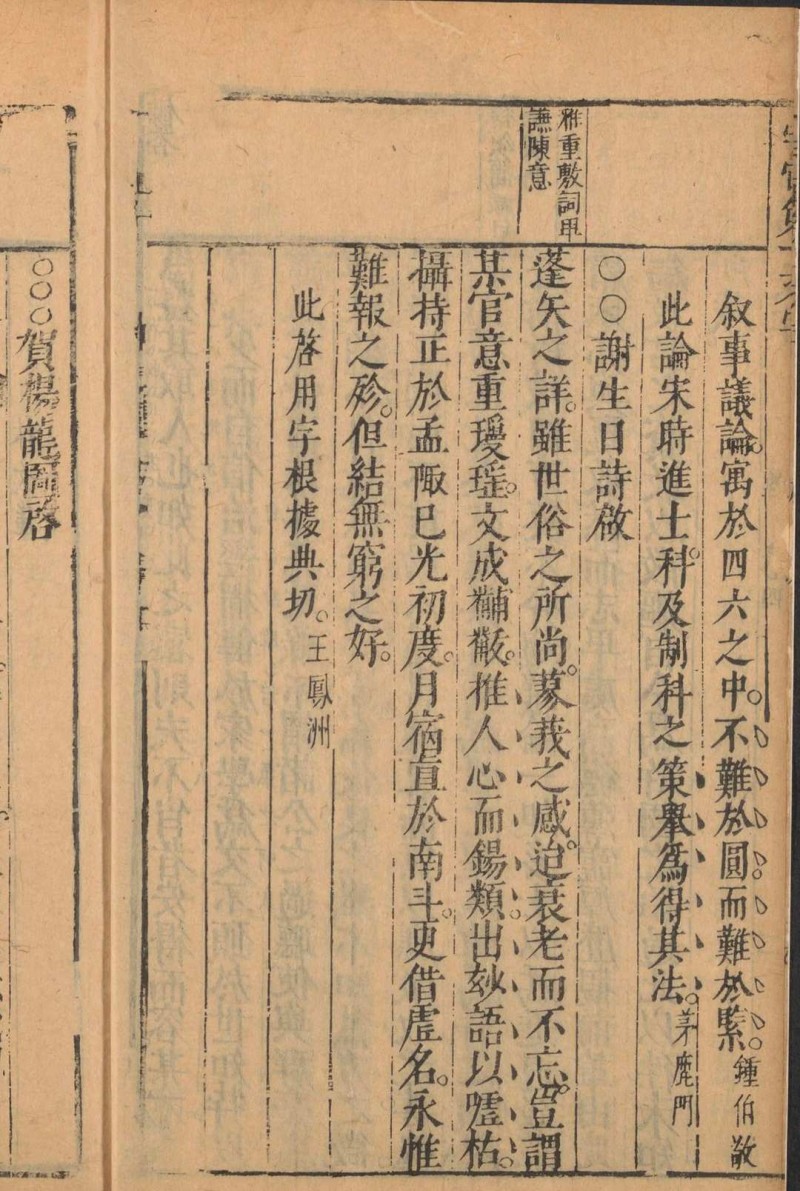 雅重敷詞甲
謙陳意
叙事議論。寓於四六之中。不難於圓。而難於緊。鍾伯敬
此論宋時進士科。及制科之策舉。爲得其法。茅鹿門
○○謝生日詩啟
蓬矢之詳。雖世俗之所尚。蓼莪之感。迨衰老而不忘。豈謂
某官意重瓊瑶。文成黼黻。推人心而錫類。出妙語以噓枯。
攝持正於孟陬。已光初度。月宿直於南斗。更借虛名。永惟
難報之珍。但結無窮之好。
此啓用字根據典切。王鳳洲
○○○賀楊龍圖啓